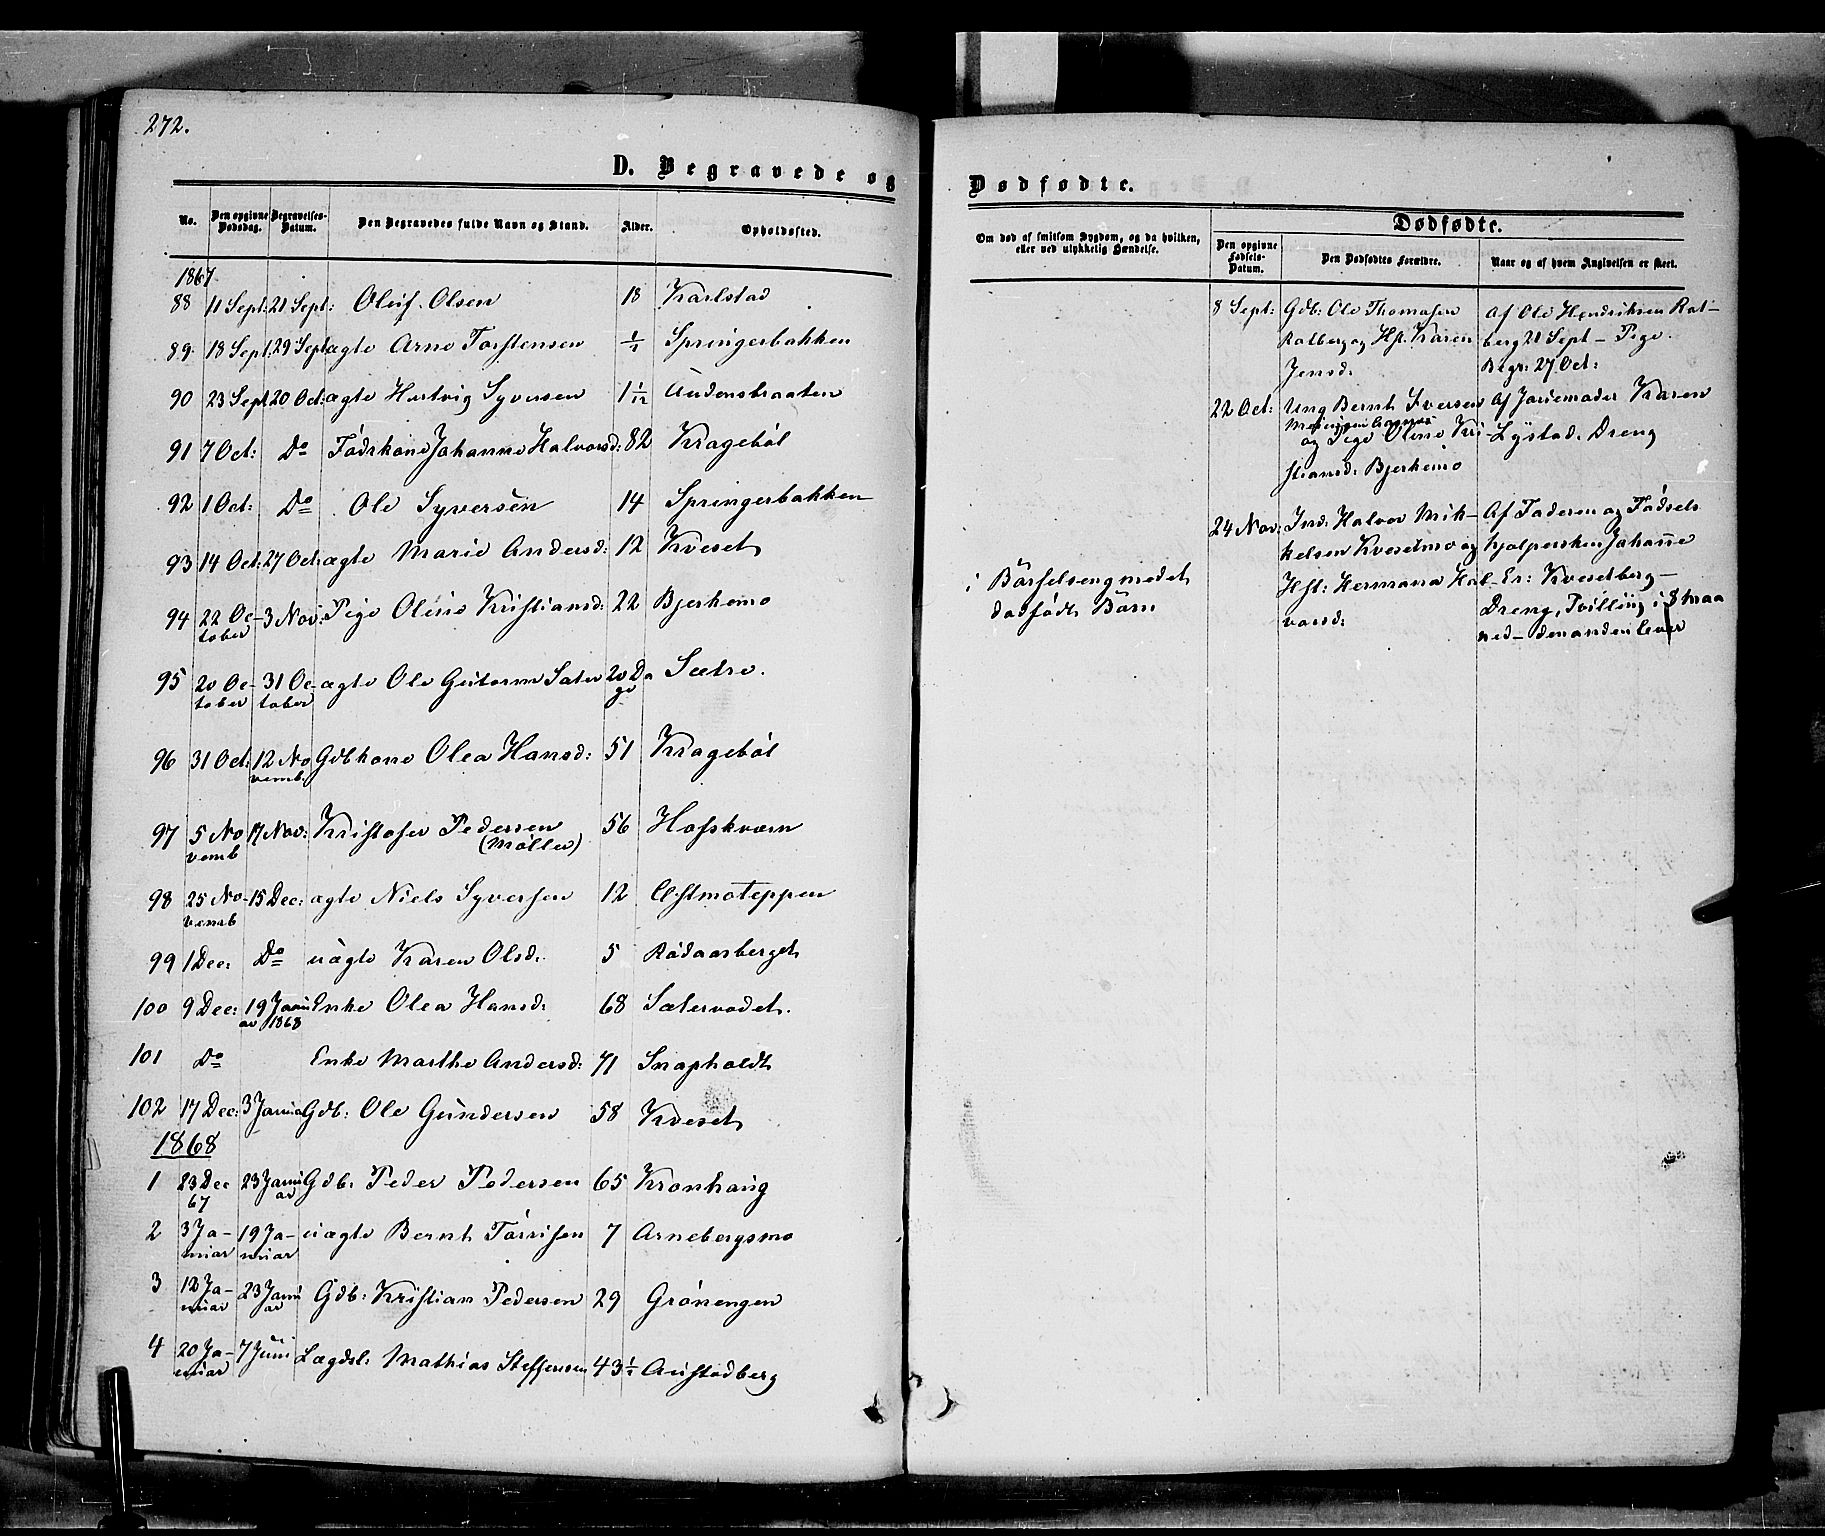 272.
D. Begravede og Dødfødte.
No.
Den opgivne Dødsdag.
Begravelses-Datum.
Den Begravedes fulde Navn og Stand.
Alder.
Opholdssted.
Om død af smitsom Sygdom, og da hvilken,
eller ved ulykkelig Hændelse.
Dødfødte.
Den opgivne Fødsels-Datum.
Den Dødfødtes Forældre.
Naar og af hvem Angivelsen er skeet.
1867
88 11 Sept: 21 Sept: Oluf Olsen 18 Karlstad
89. 18 Sept. 29 Sept ægte Arne Torstensen ½ Springerbakken
90 23 Sept 20 Oct: ægte Hertvig Syversen 1 1/12 Audensbraaten
91 7 Oct: Do Fødrkone Johanne Halvorsd: 82 Kragebøl
92 1 Oct: Do Ole Syversen 14 Springerbakken
93 14 Oct: 27 Oct: ægte Marie Andersd: 12 Kveset
94 22 October 3 Nov: Pige Oline Kristiansd: 22 Bjerkemo
95 20 October 31 October ægte Ole Guttorm Sæter 20 Dage Sætre.
96 31 Oct: 12 Novemb: Gdbkone Olea Hansd: 51 Kragebøl
97 5 Novemb 17 Nov: Kristofer Pedersen (Møller) 56 Hofskværn
98 25 Novemb 15 Dec: ægte Niels Syversen 12 Østmoteppen
99 1 Dec: Do uægte Karen Olsd: 5 Rødaasberget
100 9 Dec: 19 Januar 1868 Enke Olea Hansd: 68 Sætervadet.
101 Do Enke Marthe Andersd: 71 Snapholdt
102 17 Dec: 3 Janua Gdb: Ole Gundersen 58 Kveset
1868
1 23 Dec 67 23 Januar Gdb: Peder Pedersen 65 Kronhaug
2 3 Januar 19 Januar uægte Bernt Tørrisen 7 Arnebergsmo
3 12 Januar 23 Januar Gdb: Kristian Pedersen 29 Grönengen
4 20 Januar 7 Juni Lægdsl: Mathias Steffensen 43 ½ Austadberg
i Barselseng med et
dødfødt Barn
8 Sept: Gdb: Ole Thomasen
Ratberg og Hst. Karen
Jensd:
Af Ole Hendriksen Rat-
berg 21 Sept - Pige.
Begr: 27 Oct:
22 Oct: Ung Bernt Iversen
og Pige Oline Kri-
stiansd: Bjerkemo
Af Jordemoder Karen
Lystad. Dreng
24 Nov: Ind. Halvor Mik-
kelsen Kvesetmo og
Hst: Hermana Hal-
vorsd:
Af Faderen og Fødsels
hjælpersken Johanne
Er: Kvesetberg -
Dreng, Tvilling i 8 maa
ned - den anden lever